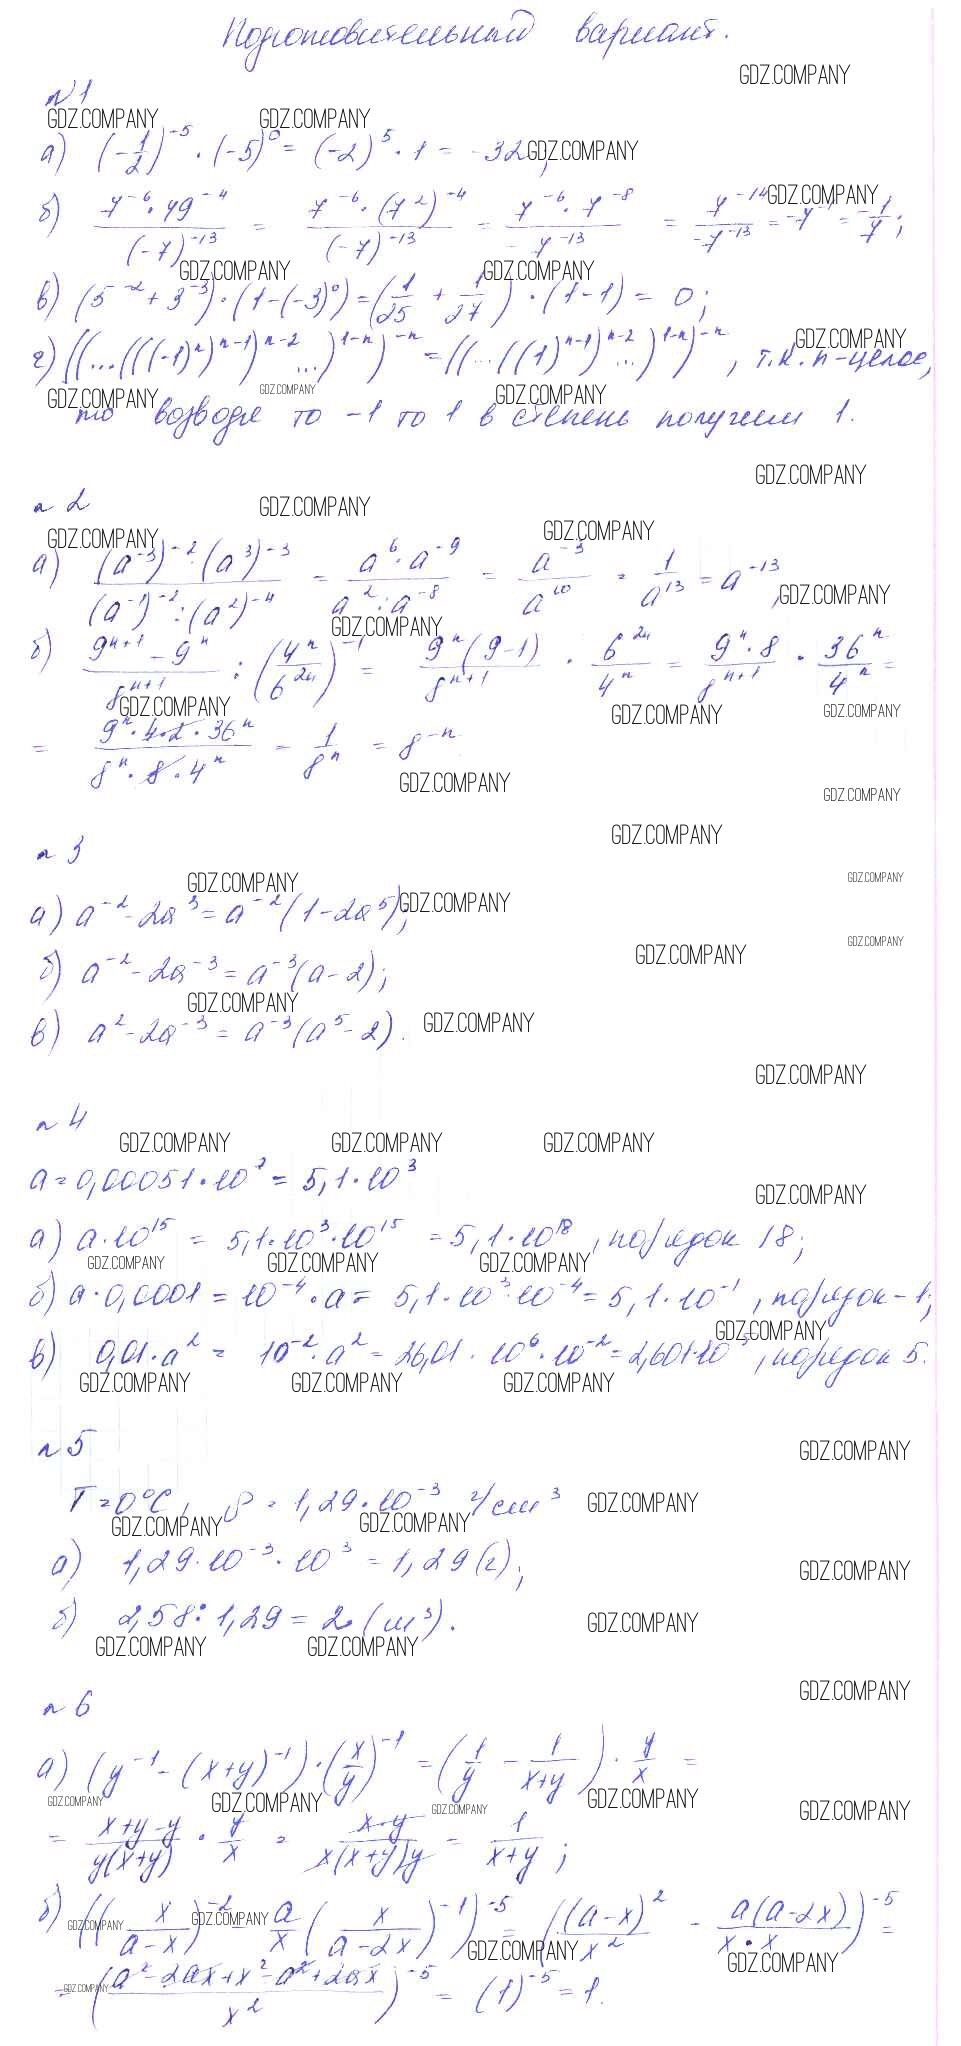 Подготовительный вариант.
GDZ.COMPANY
№1
GDZ.COMPANY GDZ.COMPANY
а) (-1/2)^-5 · (-5)^0 = (-2)^5 · 1 = -32; GDZ.COMPANY
б) 7^-6 · 49^-4 / (-7)^-13 = 7^-6 · (7^2)^-4 / (-7)^-13 = 7^-6 · 7^-8 / -7^-13 = 7^-14 / -7^-13 = -7^-1 = -1/7; GDZ.COMPANY
GDZ.COMPANY GDZ.COMPANY
в) (5^-2 + 3^-3) · (1-(-3)^0) = (1/25 + 1/27) · (1-1) = 0;
GDZ.COMPANY
г) ((...(((-1)^n)^n-1)^n-2 ...)^1-n)^-n = ((...((1)^n-1)^n-2 ...)^1-n)^-n, т.к. n-целое,
GDZ.COMPANY GDZ.COMPANY GDZ.COMPANY
то возводя то -1 то 1 в степень получим 1.
GDZ.COMPANY
№2 GDZ.COMPANY
GDZ.COMPANY GDZ.COMPANY
а) (a^-3)^-2 · (a^3)^-3 / (a^-1)^-2 : (a^2)^-4 = a^6 · a^-9 / a^2 : a^-8 = a^-3 / a^10 = 1/a^13 = a^-13, GDZ.COMPANY
GDZ.COMPANY
б) 9^n+1 - 9^n / 8^n+1 : (4^n / 6^2n)^-1 = 9^n(9-1) / 8^n+1 · 6^2n / 4^n = 9^n · 8 / 8^n+1 · 36^n / 4^n =
GDZ.COMPANY GDZ.COMPANY GDZ.COMPANY
= 9^n · 4·2 · 36^n / 8^n · 8 · 4^n = 1/8^n = 8^-n
GDZ.COMPANY GDZ.COMPANY
GDZ.COMPANY
№3
GDZ.COMPANY GDZ.COMPANY
а) a^-2 - 2a^3 = a^-2(1-2a^5); GDZ.COMPANY
GDZ.COMPANY GDZ.COMPANY
б) a^-2 - 2a^-3 = a^-3(a-2);
GDZ.COMPANY
в) a^2 - 2a^-3 = a^-3(a^5-2). GDZ.COMPANY
GDZ.COMPANY
№4
GDZ.COMPANY GDZ.COMPANY GDZ.COMPANY
a = 0,00051 · 10^7 = 5,1 · 10^3
GDZ.COMPANY
а) a · 10^15 = 5,1 · 10^3 · 10^15 = 5,1 · 10^18, порядок 18;
GDZ.COMPANY GDZ.COMPANY GDZ.COMPANY
б) a · 0,0001 = 10^-4 · a = 5,1 · 10^3 · 10^-4 = 5,1 · 10^-1, порядок -1;
GDZ.COMPANY
в) 0,01 · a^2 = 10^-2 · a^2 = 26,01 · 10^6 · 10^-2 = 2,601·10^5, порядок 5.
GDZ.COMPANY GDZ.COMPANY GDZ.COMPANY
№5 GDZ.COMPANY
T = 0°C, ρ = 1,29 · 10^-3 г/см^3 GDZ.COMPANY
GDZ.COMPANY GDZ.COMPANY
а) 1,29 · 10^-3 · 10^3 = 1,29 (г); GDZ.COMPANY
б) 2,58 : 1,29 = 2 (м^3). GDZ.COMPANY
GDZ.COMPANY GDZ.COMPANY
№6 GDZ.COMPANY
а) (y^-1 - (x+y)^-1) · (x/y)^-1 = (1/y - 1/x+y) · y/x =
GDZ.COMPANY GDZ.COMPANY GDZ.COMPANY GDZ.COMPANY GDZ.COMPANY
= x+y-y / y(x+y) · y/x = x·y / x(x+y)y = 1/x+y;
б) ((x/a-x)^-2 - a/x (x/a-2x)^-1)^-5 = ((a-x)^2 / x^2 - a(a-2x) / x·x)^-5 =
GDZ.COMPANY GDZ.COMPANY GDZ.COMPANY GDZ.COMPANY
= (a^2-2ax+x^2-a^2+2ax / x^2)^-5 = (1)^-5 = 1.
GDZ.COMPANY